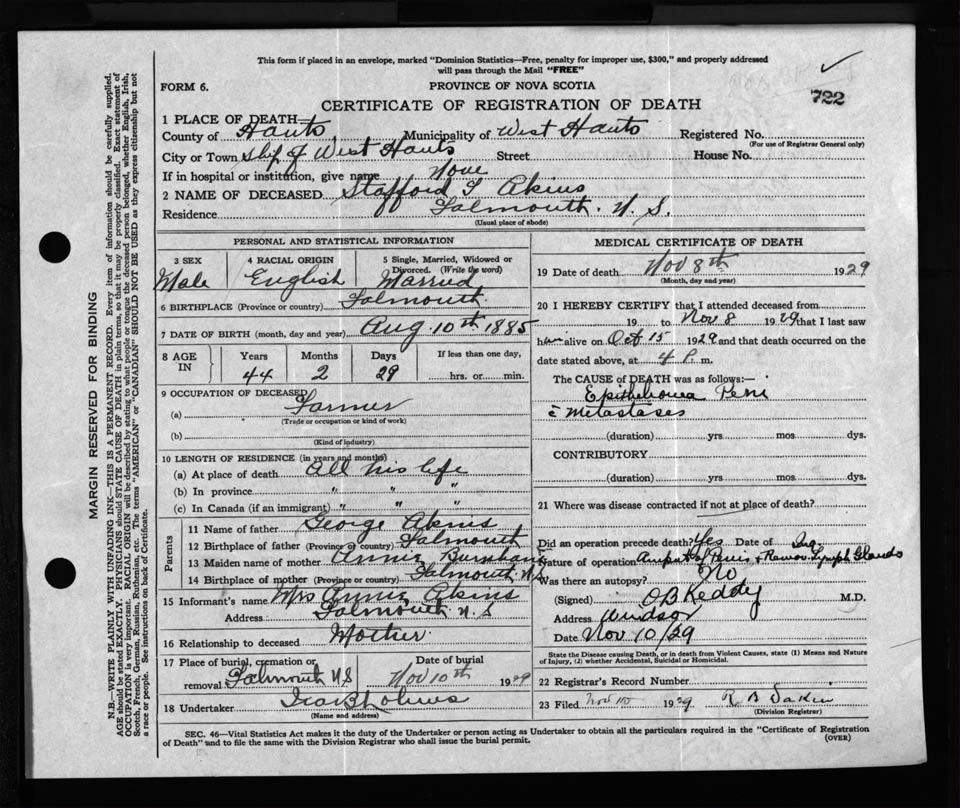 This form if placed in an envelope, marked "Dominion Statistics—Free, penalty for improper use, $300," and properly addressed
will pass through the Mail "FREE"
FORM 6.
PROVINCE OF NOVA SCOTIA
722
CERTIFICATE OF REGISTRATION OF DEATH
1 PLACE OF DEATH
County of Hants Municipality of West Hants Registered No.
(For use of Registrar General only)
City or Town Shp of West Hants Street House No.
If in hospital or institution, give name None
2 NAME OF DECEASED Stafford Akins
Residence Falmouth. N. S.
(Usual place of abode)
PERSONAL AND STATISTICAL INFORMATION
3 SEX Male
4 RACIAL ORIGIN English
5 Single, Married, Widowed or Divorced. (Write the word) Married
6 BIRTHPLACE (Province or country) Falmouth
7 DATE OF BIRTH (month, day and year) Aug. 10th 1885
8 AGE IN Years Months Days If less than one day,
44 2 29 hrs. or min.
9 OCCUPATION OF DECEASED
(a) Farmer
(Trade or occupation or kind of work)
(b)
(Kind of industry)
10 LENGTH OF RESIDENCE (in years and months)
(a) At place of death All his life
(b) In province " " "
(c) In Canada (if an immigrant) " " "
Parents
11 Name of father George Akins
12 Birthplace of father (Province or country) Falmouth
13 Maiden name of mother Annie Burnham
14 Birthplace of mother (Province or country) Falmouth N.S.
15 Informant's name Mrs Annie Akins
Address Falmouth N.S
16 Relationship to deceased Mother
17 Place of burial, cremation or removal Falmouth N S
Date of burial Nov 10th 1929
18 Undertaker
(Name and address)
MEDICAL CERTIFICATE OF DEATH
19 Date of death Nov 8th 1929
(Month, day and year)
20 I HEREBY CERTIFY that I attended deceased from
19 to Nov 8 1929 that I last saw
him alive on Oct 15 1929 and that death occurred on the
date stated above, at 4 P. m.
The CAUSE of DEATH was as follows:—
Epithelioma Peni
c̄ metastases
(duration) yrs. mos. dys.
CONTRIBUTORY
(duration) yrs. mos. dys.
21 Where was disease contracted if not at place of death?
Did an operation precede death? Yes Date of
Nature of operation Lymph Glands
Was there an autopsy? No
(Signed) O B Keddy M.D.
Address Windsor
Date Nov 10/29
State the Disease causing Death, or in death from Violent Causes, state (1) Means and Nature
of Injury, (2) whether Accidental, Suicidal or Homicidal.
22 Registrar's Record Number
23 Filed Nov 10 1929
(Division Registrar)
SEC. 46—Vital Statistics Act makes it the duty of the Undertaker or person acting as Undertaker to obtain all the particulars required in the "Certificate of Registration
of Death" and to file the same with the Division Registrar who shall issue the burial permit.
(OVER)
MARGIN RESERVED FOR BINDING
N.B.—WRITE PLAINLY WITH UNFADING INK—THIS IS A PERMANENT RECORD. Every item of information should be carefully supplied.
AGE should be stated EXACTLY. PHYSICIANS should STATE CAUSE OF DEATH in plain terms, so that it may be properly classified. Exact statement of
OCCUPATION is very important. RACIAL ORIGIN will be described by stating to what people or tongue the deceased person belonged, whether English, Irish,
Scotch, French, German, Russian, Ruthenian, etc. The terms "AMERICAN" or "CANADIAN" SHOULD NOT BE USED as they express citizenship but not
a race or people. See instructions on back of Certificate.